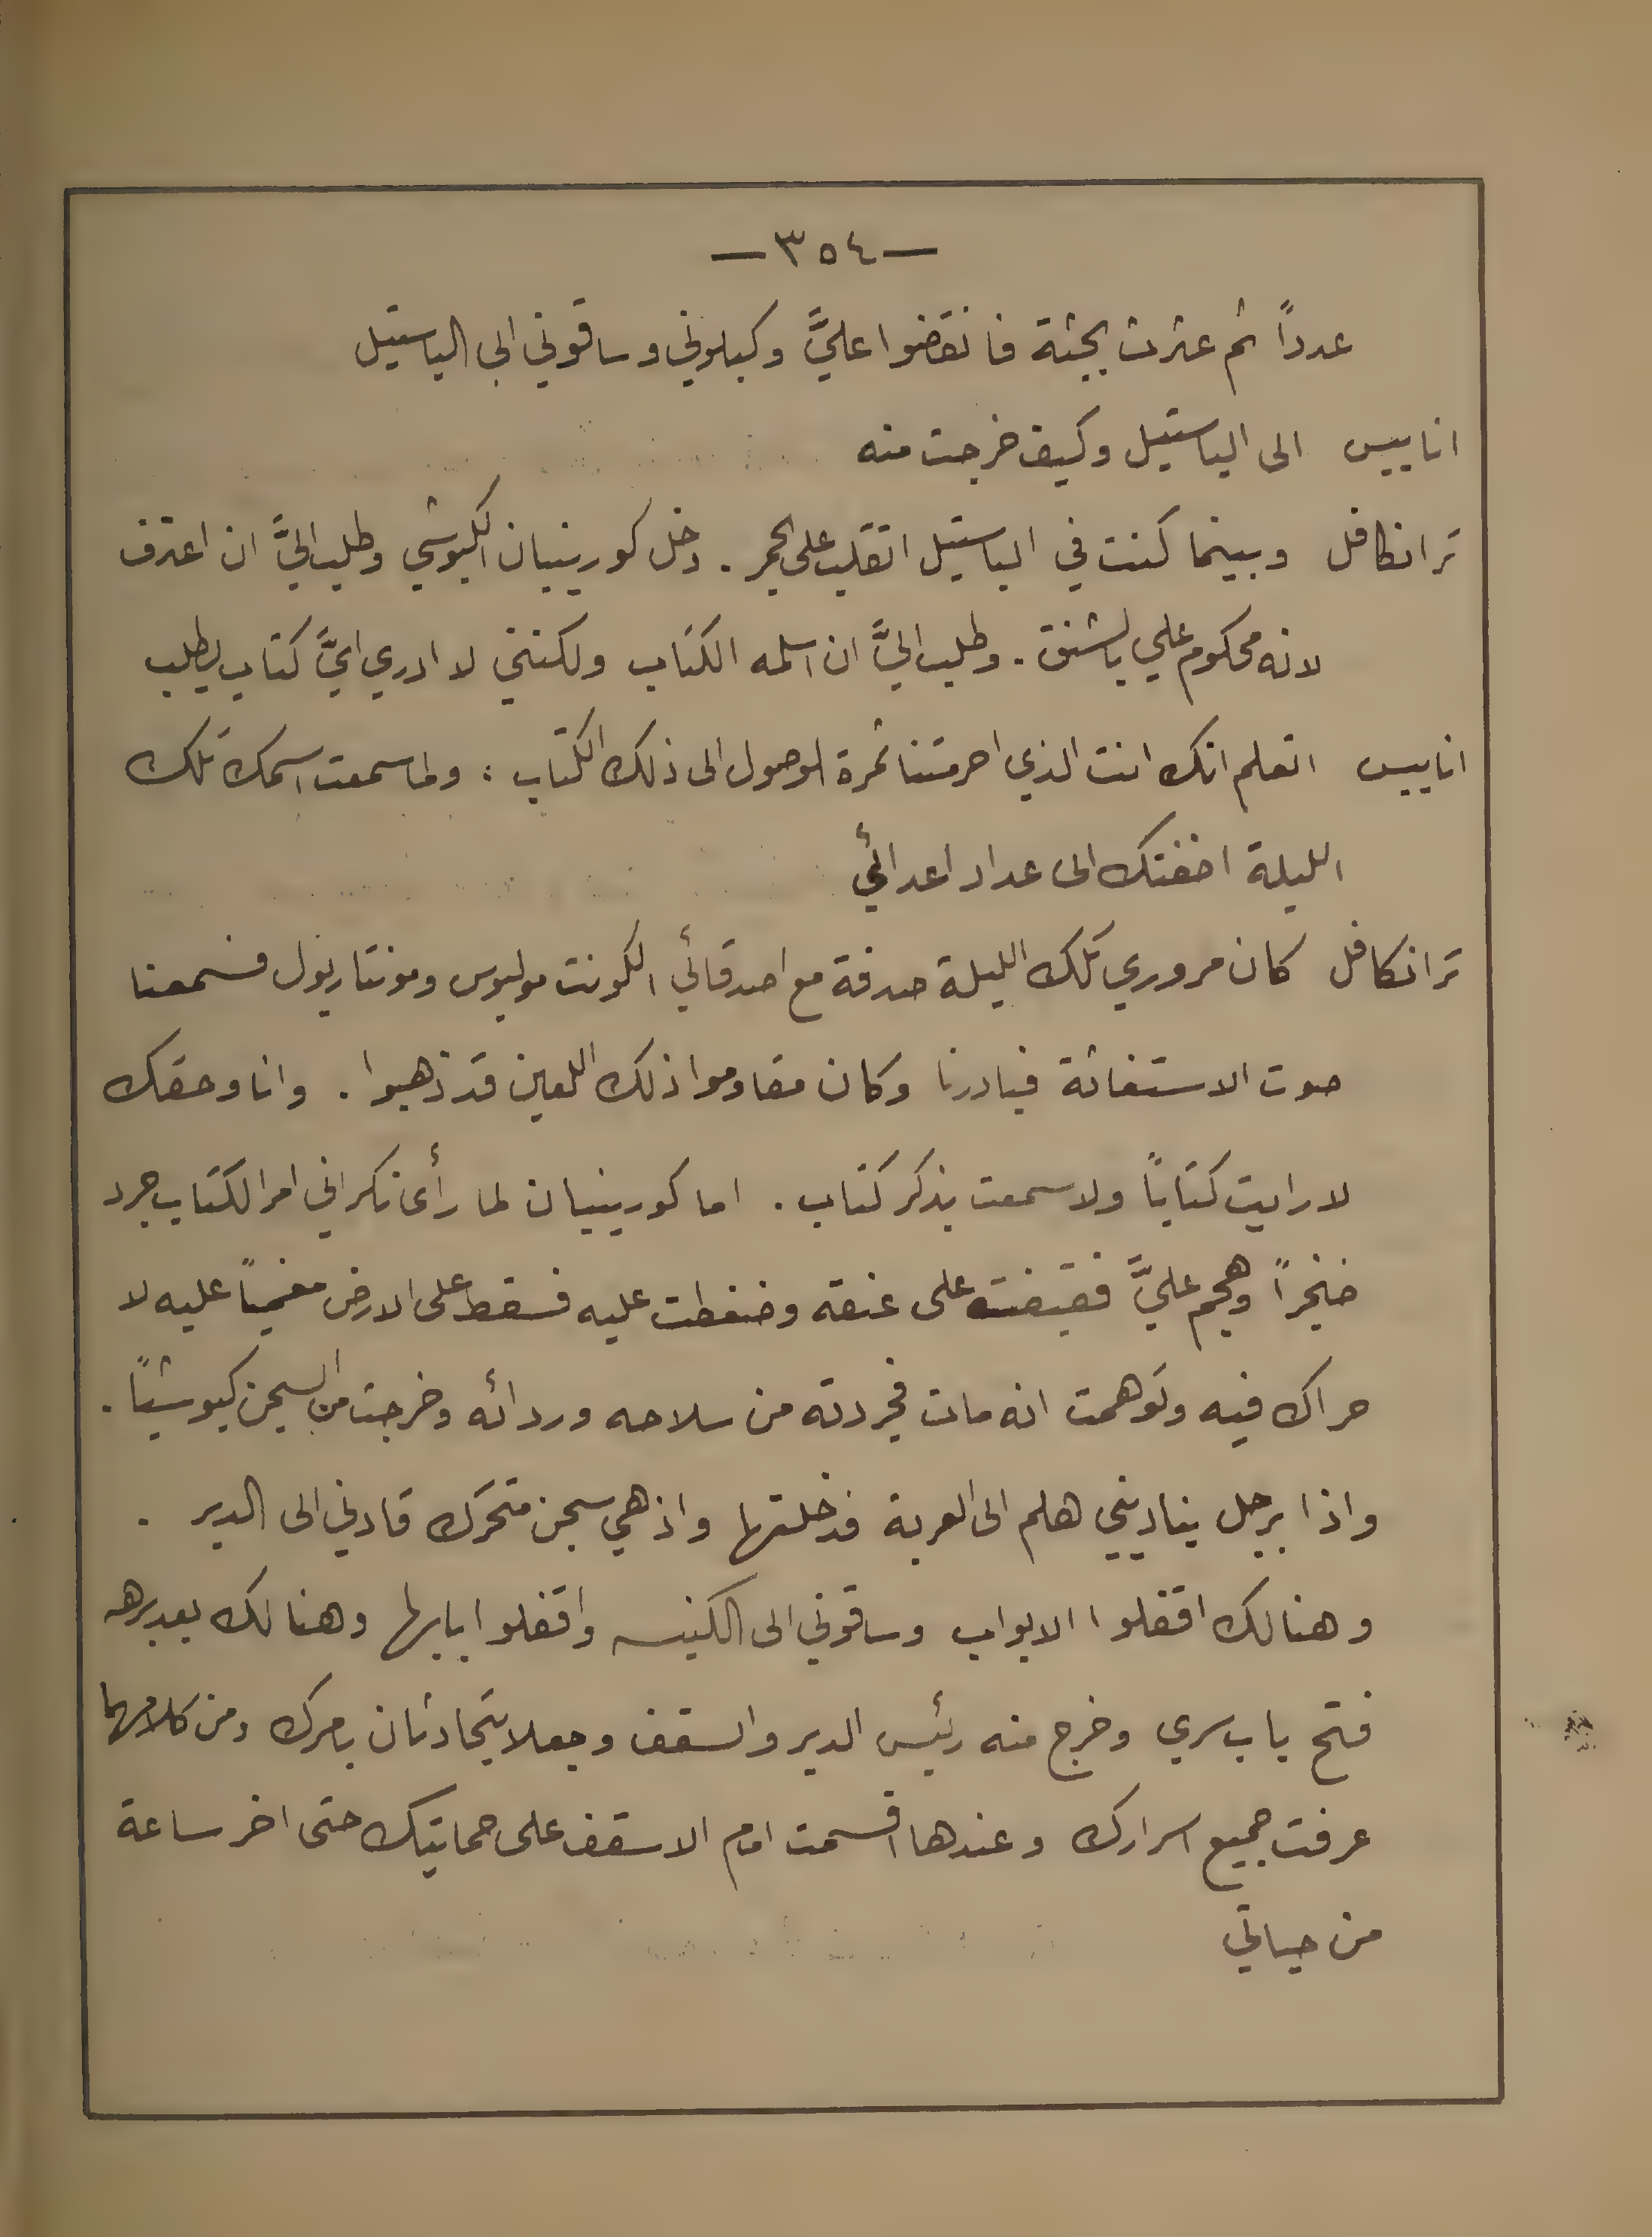 — ٣٥٤ —
عدداً ثم عثرت بجثة فانقضوا عليَّ وكبلوني وساقوني الى الباستيل
اناييس الى الباستيل وكيف خرجت منه
ترانكافل وبينما كنت في الباستيل اتقلب على الجمر . دخل كورينيان الكبوشي وطلب اليَّ ان اعترف
لانه محكوم علي بالشنق . وطلب اليَّ ان اسلمه الكتاب ولكنني لا ادري ايَّ كتاب يطلب
اناييس اتعلم انك انت الذي احرمتنا ثمرة الوصول الى ذلك الكتاب : ولما سمعت اسمك تلك
الليلة اضفتك الى عداد اعدائي
ترانكافل كان مروري تلك الليلة صدفة مع اصدقائي الكونت موليوس ومونتاريول فسمعنا
صوت الاستغاثة فبادرنا وكان مقاوموا ذلك اللعين قد ذهبوا . وانا وحقك
لا رايت كتاباً ولا سمعت بذكر كتاب . اما كورينيان لما رأى نكراني امر الكتاب جرد
خنجراً وهجم عليَّ فقبضت على عنقه وضغطت عليه فسقط على الارض مغمياً عليه لا
حراك فيه وتوهمت انه مات فجردته من سلاحه وردائه وخرجت من السجن كبوشياً .
واذا برجل يناديني هلم الى العربة فدخلتها واذ هي سجن متحرك قادني الى الدير .
وهنالك اقفلوا الابواب وساقوني الى الكنيسه واقفلوا بابها وهنالك بعد برهه
فتح باب سري وخرج منه رئيس الدير واسقف وجعلا يتحادثان بامرك ومن كلامهما
عرفت جميع اسرارك وعندها اقسمت امام الاسقف على حمايتك حتى اخر ساعة
من حياتي